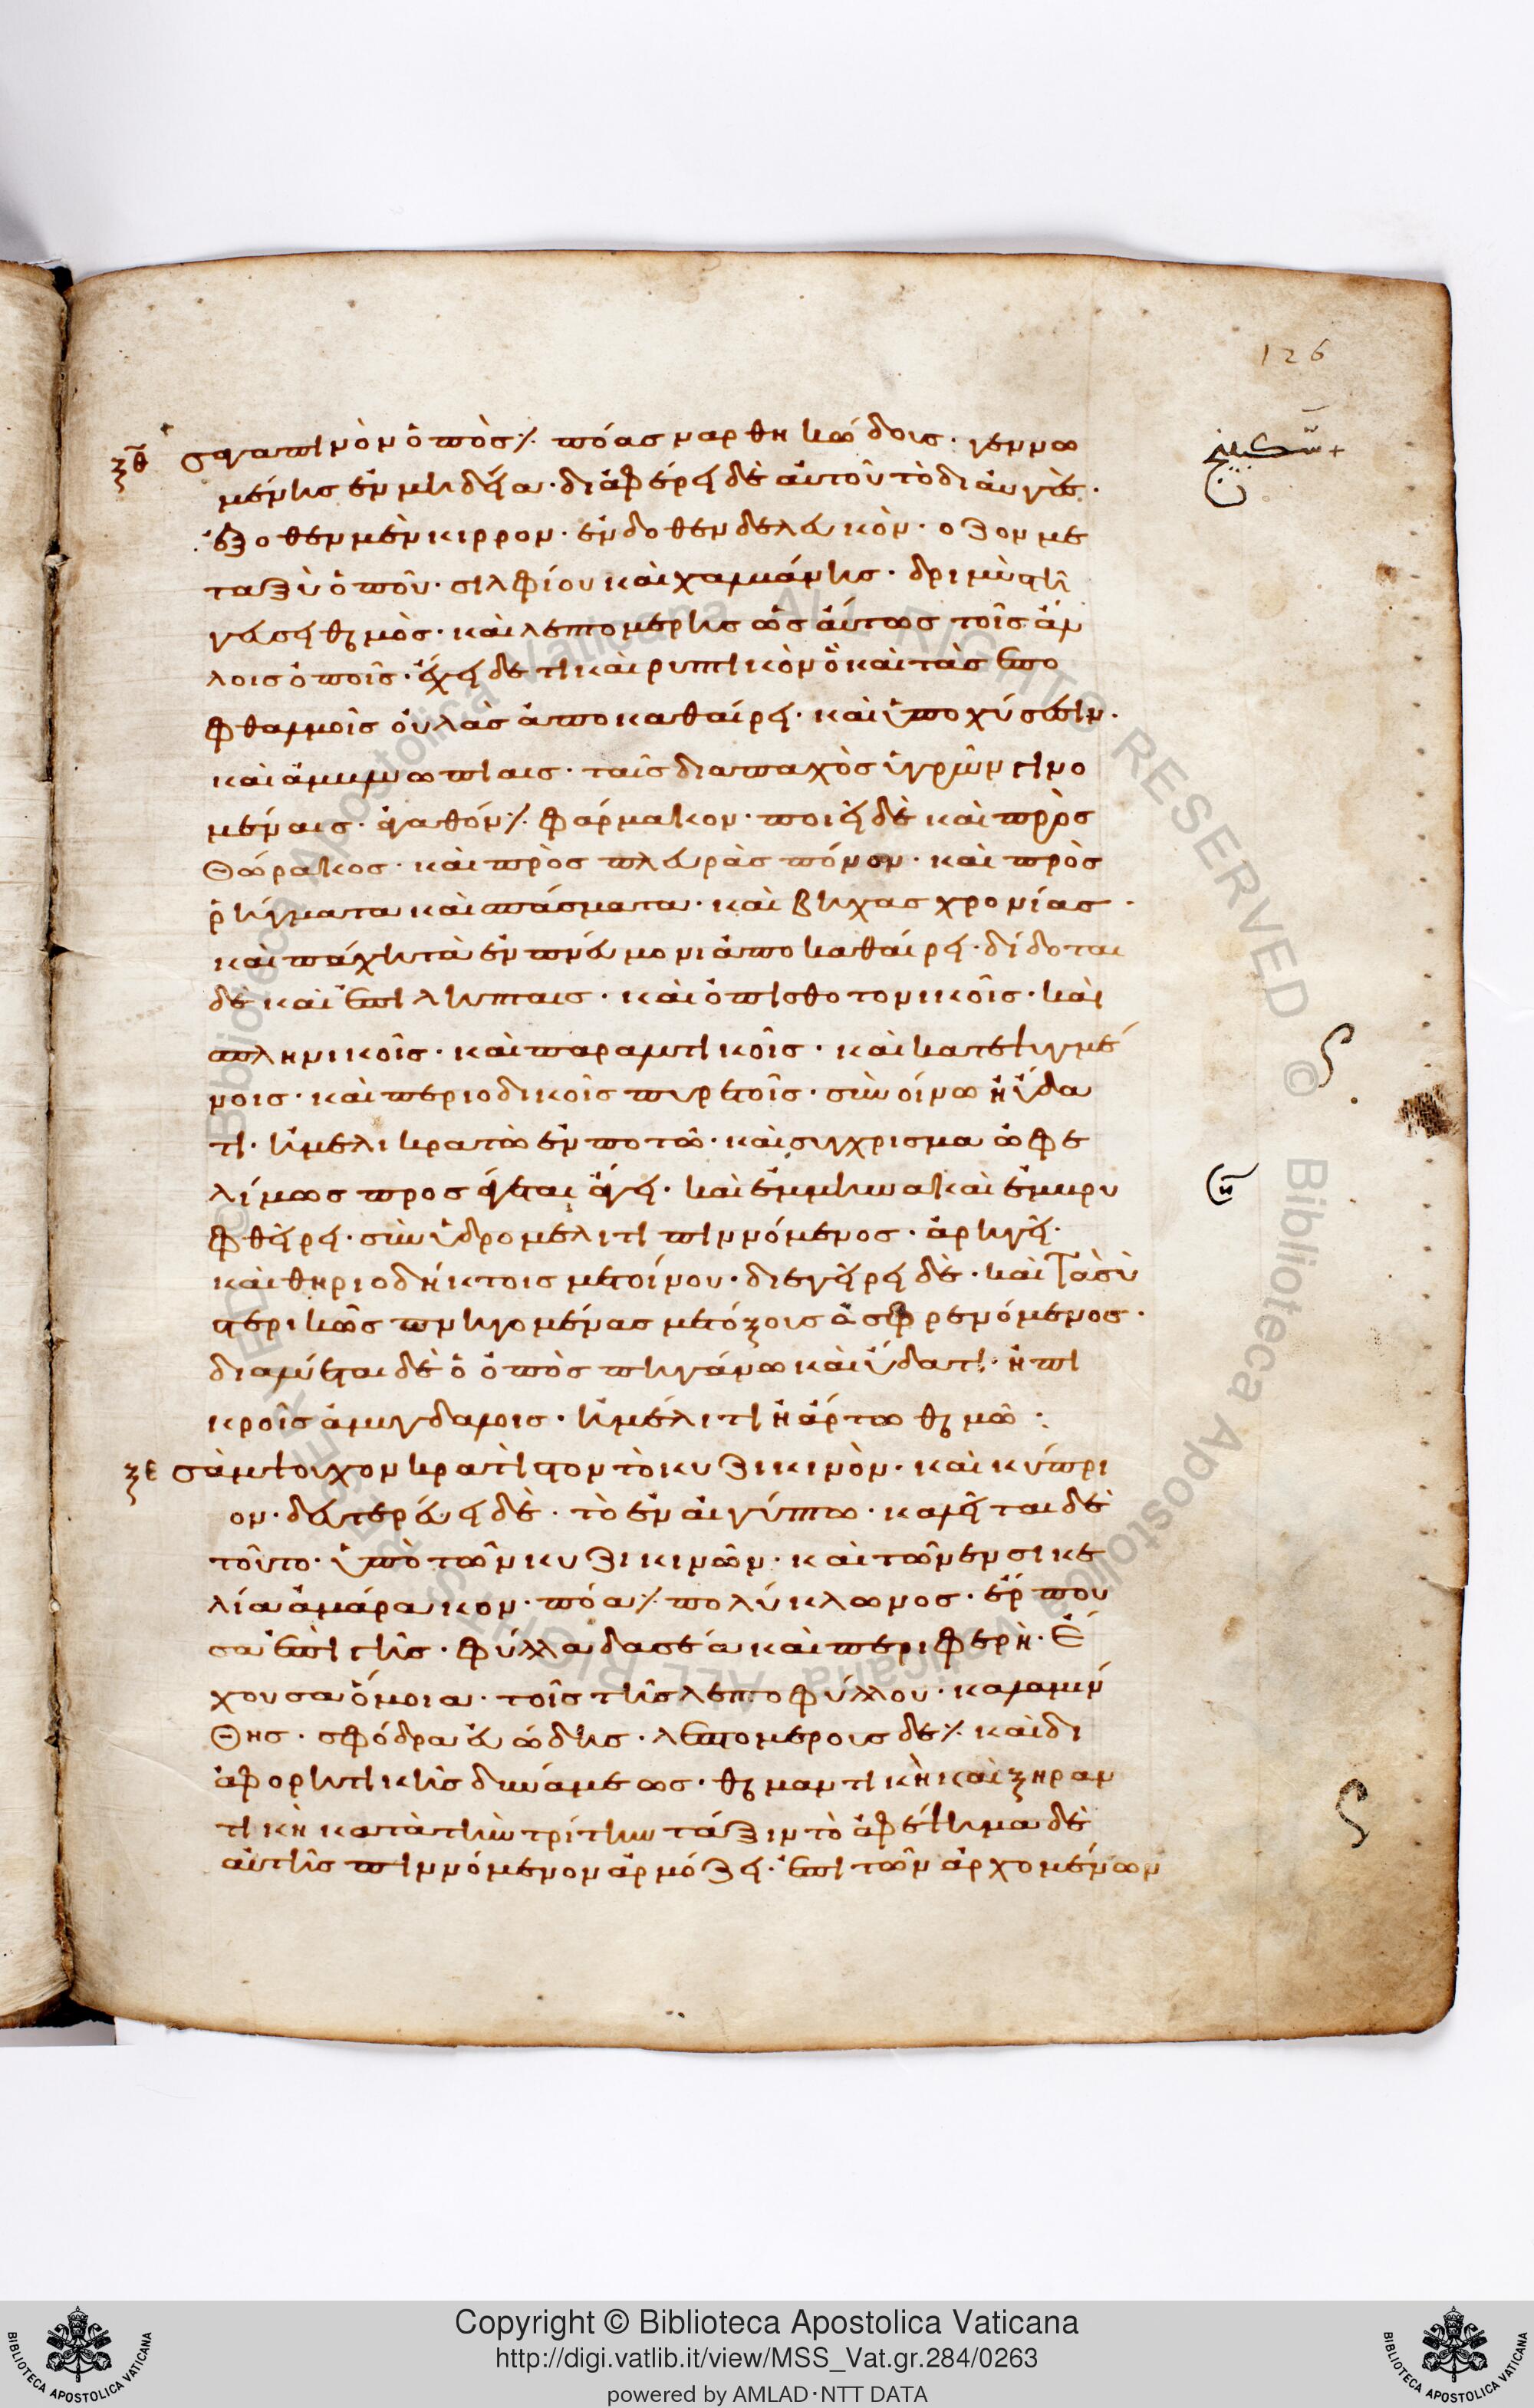 126
ξθ σαγαπηνὸν ὀπὸς· πόας ναρθηκώδους· γεννω
μένης ἐν μηδεία· διαφέρει δὲ αὐτοῦ τὸ διαυγὲς·
ἔξοθεν μὲν κιρρον· ἔνδοθεν δὲ λευκὸν· οζον με
ταξὺ ὀποῦ· σιλφίου καὶ χαλβάνης· δριμὺ τῆ
γεύσει θερμὸς· καὶ λεπτομερὴς ὡσαύτως τοῖς ἄλ
λοις ὀποῖς· ἔχει δέ τι καὶ ρυπτικὸν ὃ καὶ τὰς ἐπο
φθαλμοῖς οὐλὰς ἀποκαθαίρει· καὶ ὑποχύσεσιν·
καὶ ἀμβλυωπίαις· ταῖς διαπαχὸς ὑγρῶν γινο
μέναις· ἀγαθόν· φάρμακον· ποιεῖ δὲ καὶ πρὸς
θώρακος· καὶ πρὸς πλευρὰς πόνον· καὶ πρὸς
ῥήγματα καὶ σπάσματα· καὶ βηχας χρονίας·
καὶ πάχη τὰ ἐν πνεύμονι ἀποκαθαίρει· δίδοται
δὲ καὶ ἐπιλήπταις· καὶ ὀπισθοτονικοῖς· καὶ
σπληνικοῖς· καὶ παραλυτικοῖς· καὶ κατεψυγμέ
νοις· καὶ περιοδικοῖς πυρετοῖς· σὺν οἴνω ἢ ὕδα
τι· ἢ μελικράτω ἐν ποτῶ· καὶ συγχρισμα ὠφε
λίμως προσάγεται ἄγει· καὶ ἔμμηνα καὶ ἔμβρυ
φθείρει· σὺν ὑδρομέλιτι πιννόμενος· ἀρήγει·
καὶ θηριοδήκτοις μετοίνου· διεγείρει δὲ· καὶ τὰς ὑ
στερικῶς πνηγομένας μετόξους ὀσφρενόμενος·
διαλύεται δὲ ὁ ὀπὸς πηγάνω καὶ ὕδατι· ἢ πι
κροῖς ἀμυγδάλοις· ἢ μέλιτι ἢ ἄρτω θερμῶ·
ξε σάμψουχον κράτιστον τὸ κυζικινὸν· καὶ κύπρι
ον· δευτερεύει δὲ· τὸ ἐν αἰγύπτω· καλεῖται δὲ
τοῦτο· ὑπὸ τῶν κυζικινῶν· καὶ τῶν ἐν σικε
λία ἀμάρακον· πόα· πολύκλωνος· ἕρπου
σα ἐπὶ γῆς· φύλλα δασέα καὶ περιφερὴ· ἔ
χουσα ὅμοια· τοῖς τῆς λεπτοφύλλου· καλαμίν
θης· σφόδρα εὐώδης· λεπτομέρους δὲ· καὶ δι
αφορητικῆς δυνάμεως· θερμαντικὴ καὶ ξηραν
τικὴ κατὰ τὴν τρίτην τάξιν τὸ ἀφέψημα δὲ
αὐτῆς πιννόμενον ἁρμόζει· ἐπὶ τῶν ἀρχομένων
Copyright © Biblioteca Apostolica Vaticana
http://digi.vatlib.it/view/MSS_Vat.gr.284/0263
powered by AMLAD·NTT DATA